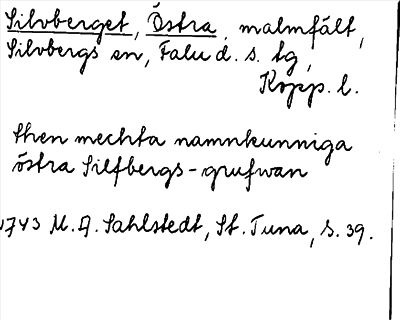 Silvberget, Östra, malmfält,
Silvbergs sn, Falu d. s. tg,
Kopp. l.
then mechta namnkunniga
östra Silfbergs-grufwan
1743 M. A. Sahlstedt, St. Tuna, s. 39.